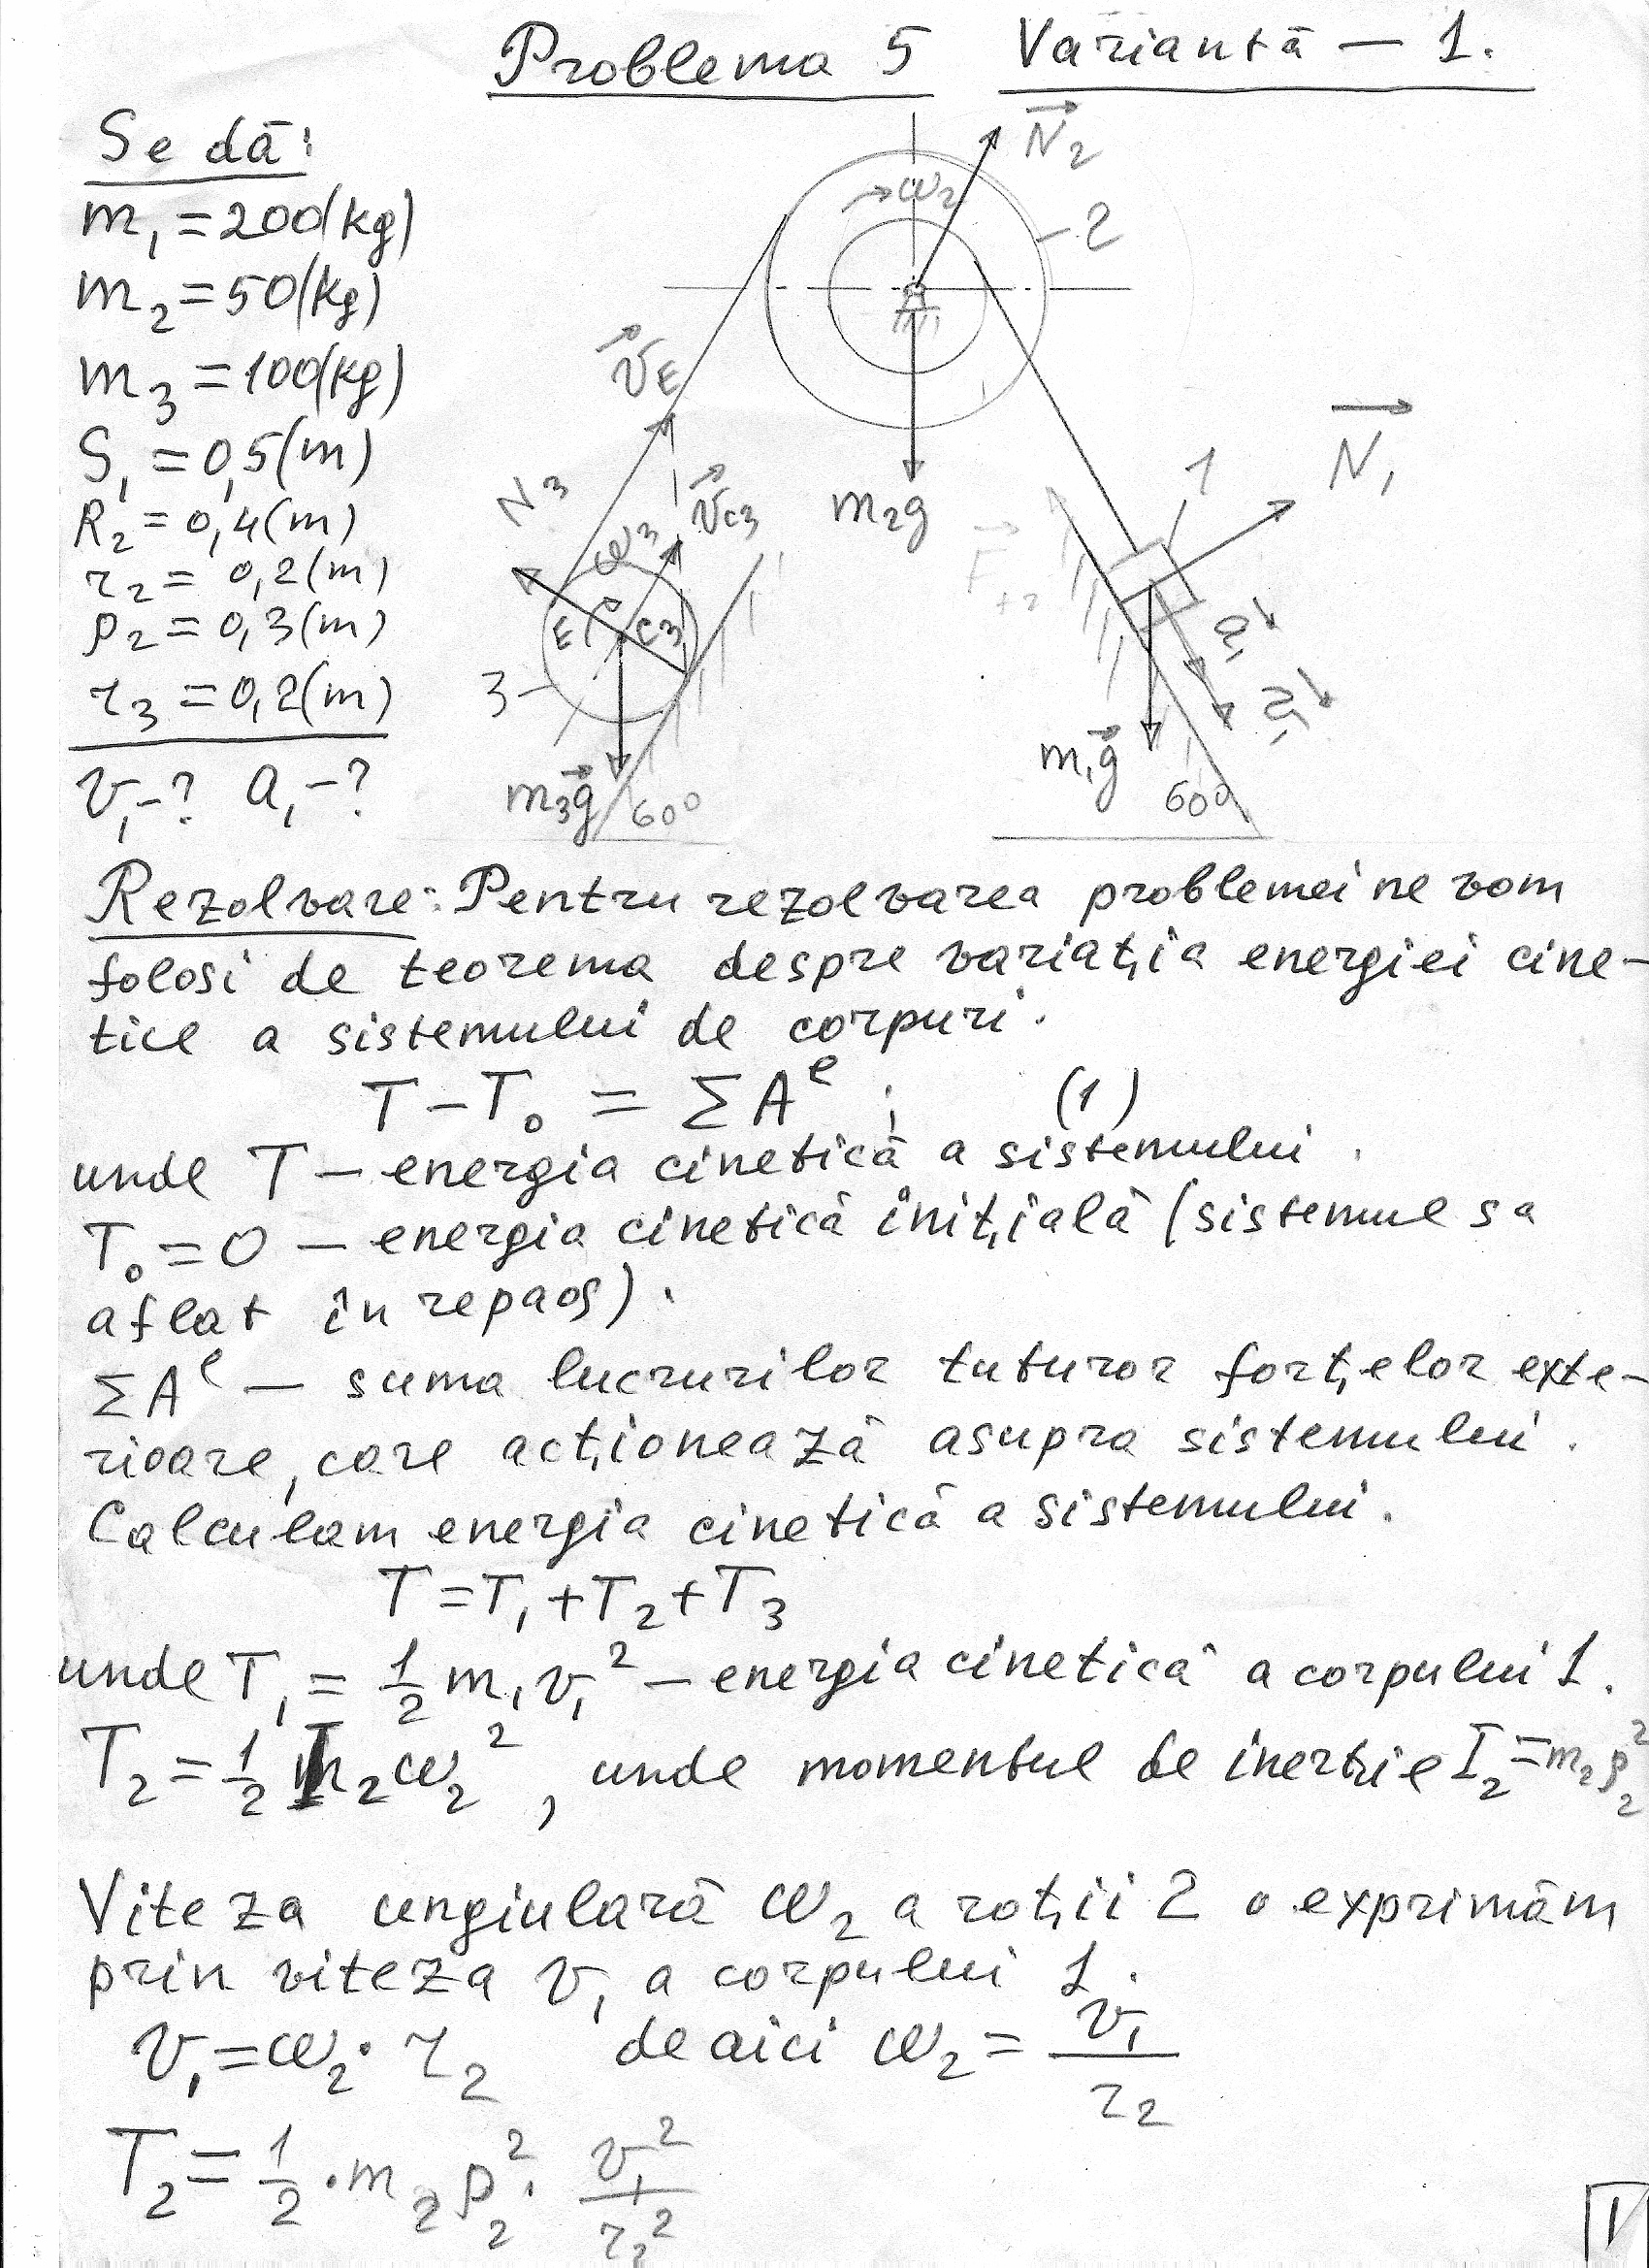 Problema 5 Variantă — 1.
Se dă:
m₁ = 200(kg)
m₂ = 50(kg)
m₃ = 100(kg)
S₁ = 0,5(m)
R₂ = 0,4(m)
r₂ = 0,2(m)
ρ₂ = 0,3(m)
r₃ = 0,2(m)
v₁-? a₁-?
N₂
ω₂
2
v_E
N₃
ω₃
v_C3
m₂g
1
N₁
E
C₃
3
a₁
v₁
m₃g
60°
m₁g
60°
Rezolvare: Pentru rezolvarea problemei ne vom
folosi de teorema despre variația energiei cine-
tice a sistemului de corpuri.
T – T₀ = ΣAᵉ ; (1)
unde T – energia cinetică a sistemului.
T₀ = 0 – energia cinetică inițială (sistemul sa
aflat în repaos).
ΣAᵉ – suma lucrurilor tuturor forțelor exte-
rioare, care acționează asupra sistemului.
Calculam energia cinetică a sistemului.
T = T₁ + T₂ + T₃
unde T₁ = 1/2 m₁v₁² – energia cinetică a corpului 1.
T₂ = 1/2 I₂ω₂², unde momentul de inerție I₂ = m₂ρ₂²
Viteza ungiulară ω₂ a roții 2 o exprimăm
prin viteza v₁ a corpului 1.
v₁ = ω₂ · r₂ de aici ω₂ = v₁/r₂
T₂ = 1/2 · m₂ρ₂² · v₁²/r₂²
1